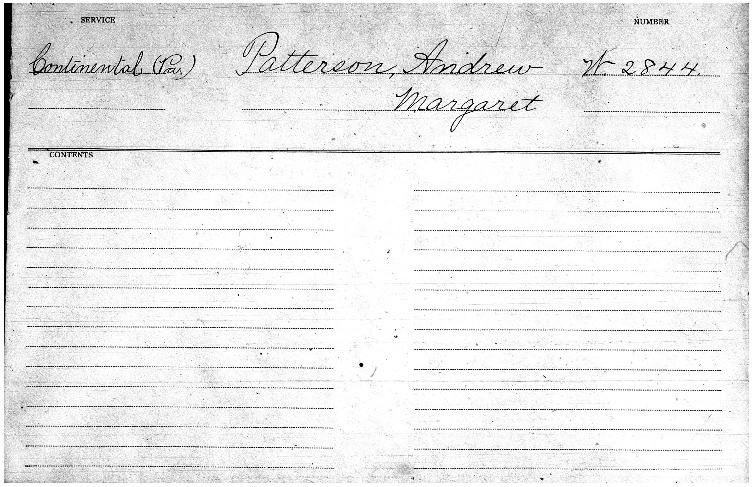 SERVICE NUMBER
Continental (Pa.) Patterson, Andrew W. 2844.
Margaret
CONTENTS